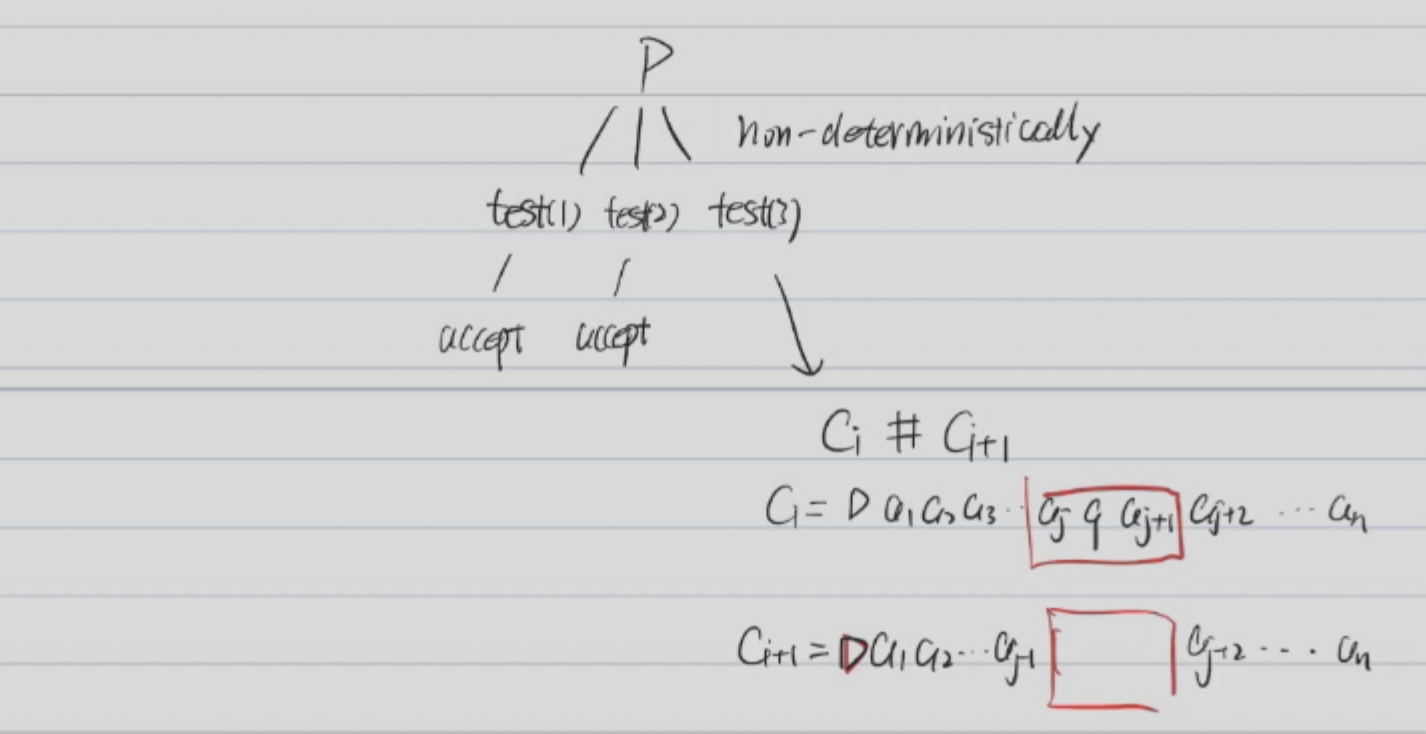 P
non-deterministically
test(1) test(2) test(3)
accept accept
Ci # Ci+1
Ci = D a1 a2 a3 .. aj q aj+1 aj+2 ... an
Ci+1 = D a1 a2 ... aj-1 aj+2 ... an